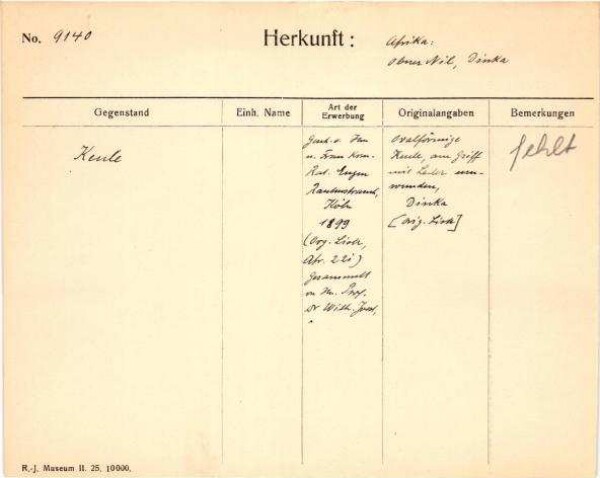 No. 9140
Herkunft:
Afrika:
Oberer Nil, Dinka
Gegenstand
Einh. Name
Art der Erwerbung
Originalangaben
Bemerkungen
Keule
Gesch. v. Herrn
u. Frau Kom.
Rat. Eugen
Rautenstrauch,
Köln
1899
(Org. Liste,
Afr. 22i)
Gesammelt
v. Hn. Prof.
Dr Wilh. Joest.
Ovalförmige
Keule, am Griff
mit Leder um-
wunden,
Dinka
[Orig. Liste]
fehlt
R.-J. Museum II. 25. 10000.